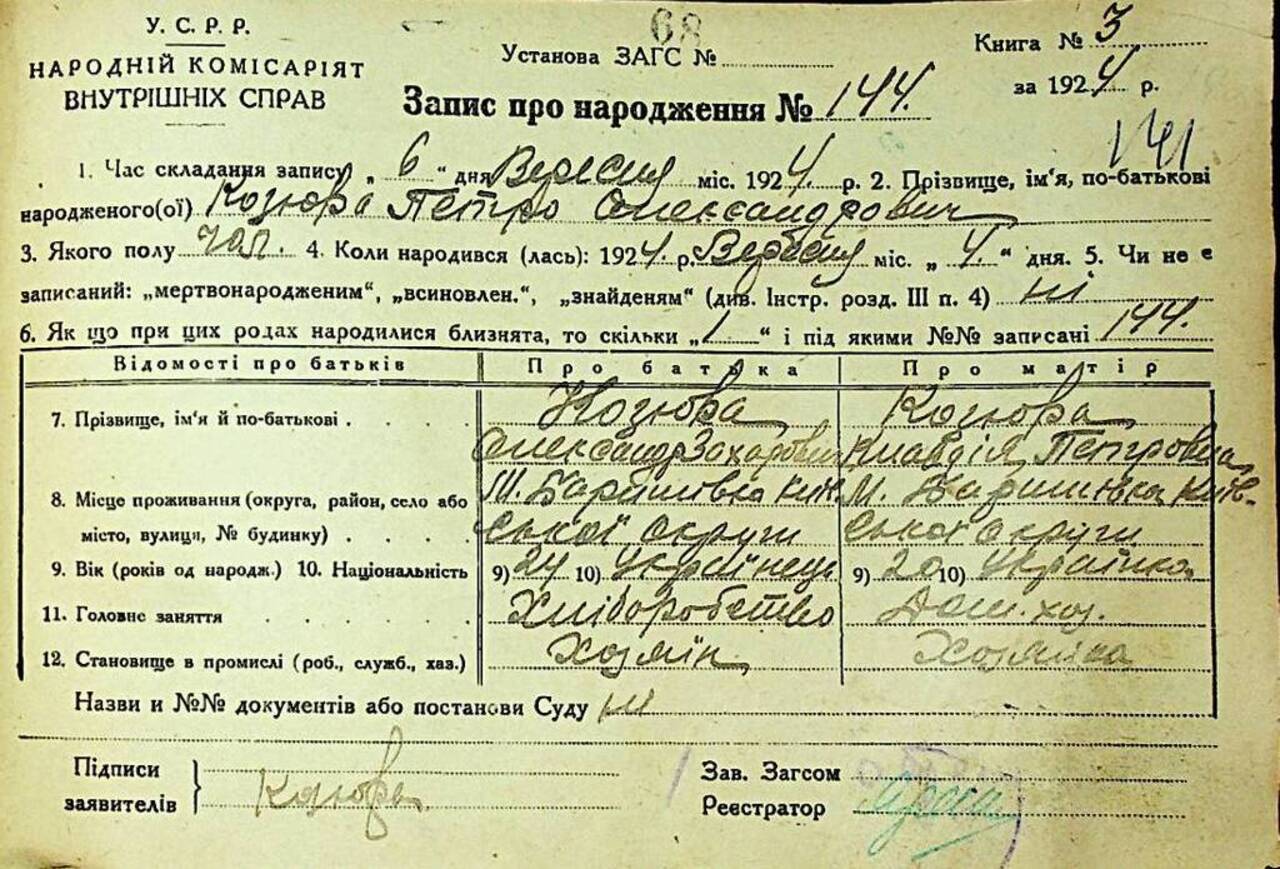 У. С. Р. Р.
НАРОДНІЙ КОМІСАРІЯТ
ВНУТРІШНІХ СПРАВ
68
Установа ЗАГС №
Книга № 3
за 1924 р.
Запис про народження № 144.
141
1. Час складання запису „ 6 “ дня Вересня міс. 1924. р. 2. Прізвище, ім'я, по-батькові
народженого(ої) Козюра Петро Олександрович
3. Якого полу чол. 4. Коли народився (лась): 1924. р. Вересня міс. „ 4. “ дня. 5. Чи не є
записаний: „мертвонародженим“, „всиновлен.“, „знайденям“ (див. Інстр. розд. III п. 4) ні
6. Як що при цих родах народилися близнята, то скільки „ 1 “ і під якими №№ записані 144.
Відомості про батьків Про батька Про матір
7. Прізвище, ім'я й по-батькові Козюра Козюра
Олександр Захарович Клавдія Петровна
8. Місце проживання (округа, район, село або М. Баришівка Київ М. Баришівка Київ-
місто, вулиця, № будинку) ської округи ської округи
9. Вік (років од народж.) 10. Національність 9) 24 10) Українець 9) 20 10) Українка
11. Головне заняття Хліборобство Дом. хоз.
12. Становище в промислі (роб., служб., хаз.) Хозяїн Хозяйка
Назви и №№ документів або постанови Суду ні
Підписи
заявителів Козюра
Зав. Загсом
Реєстратор